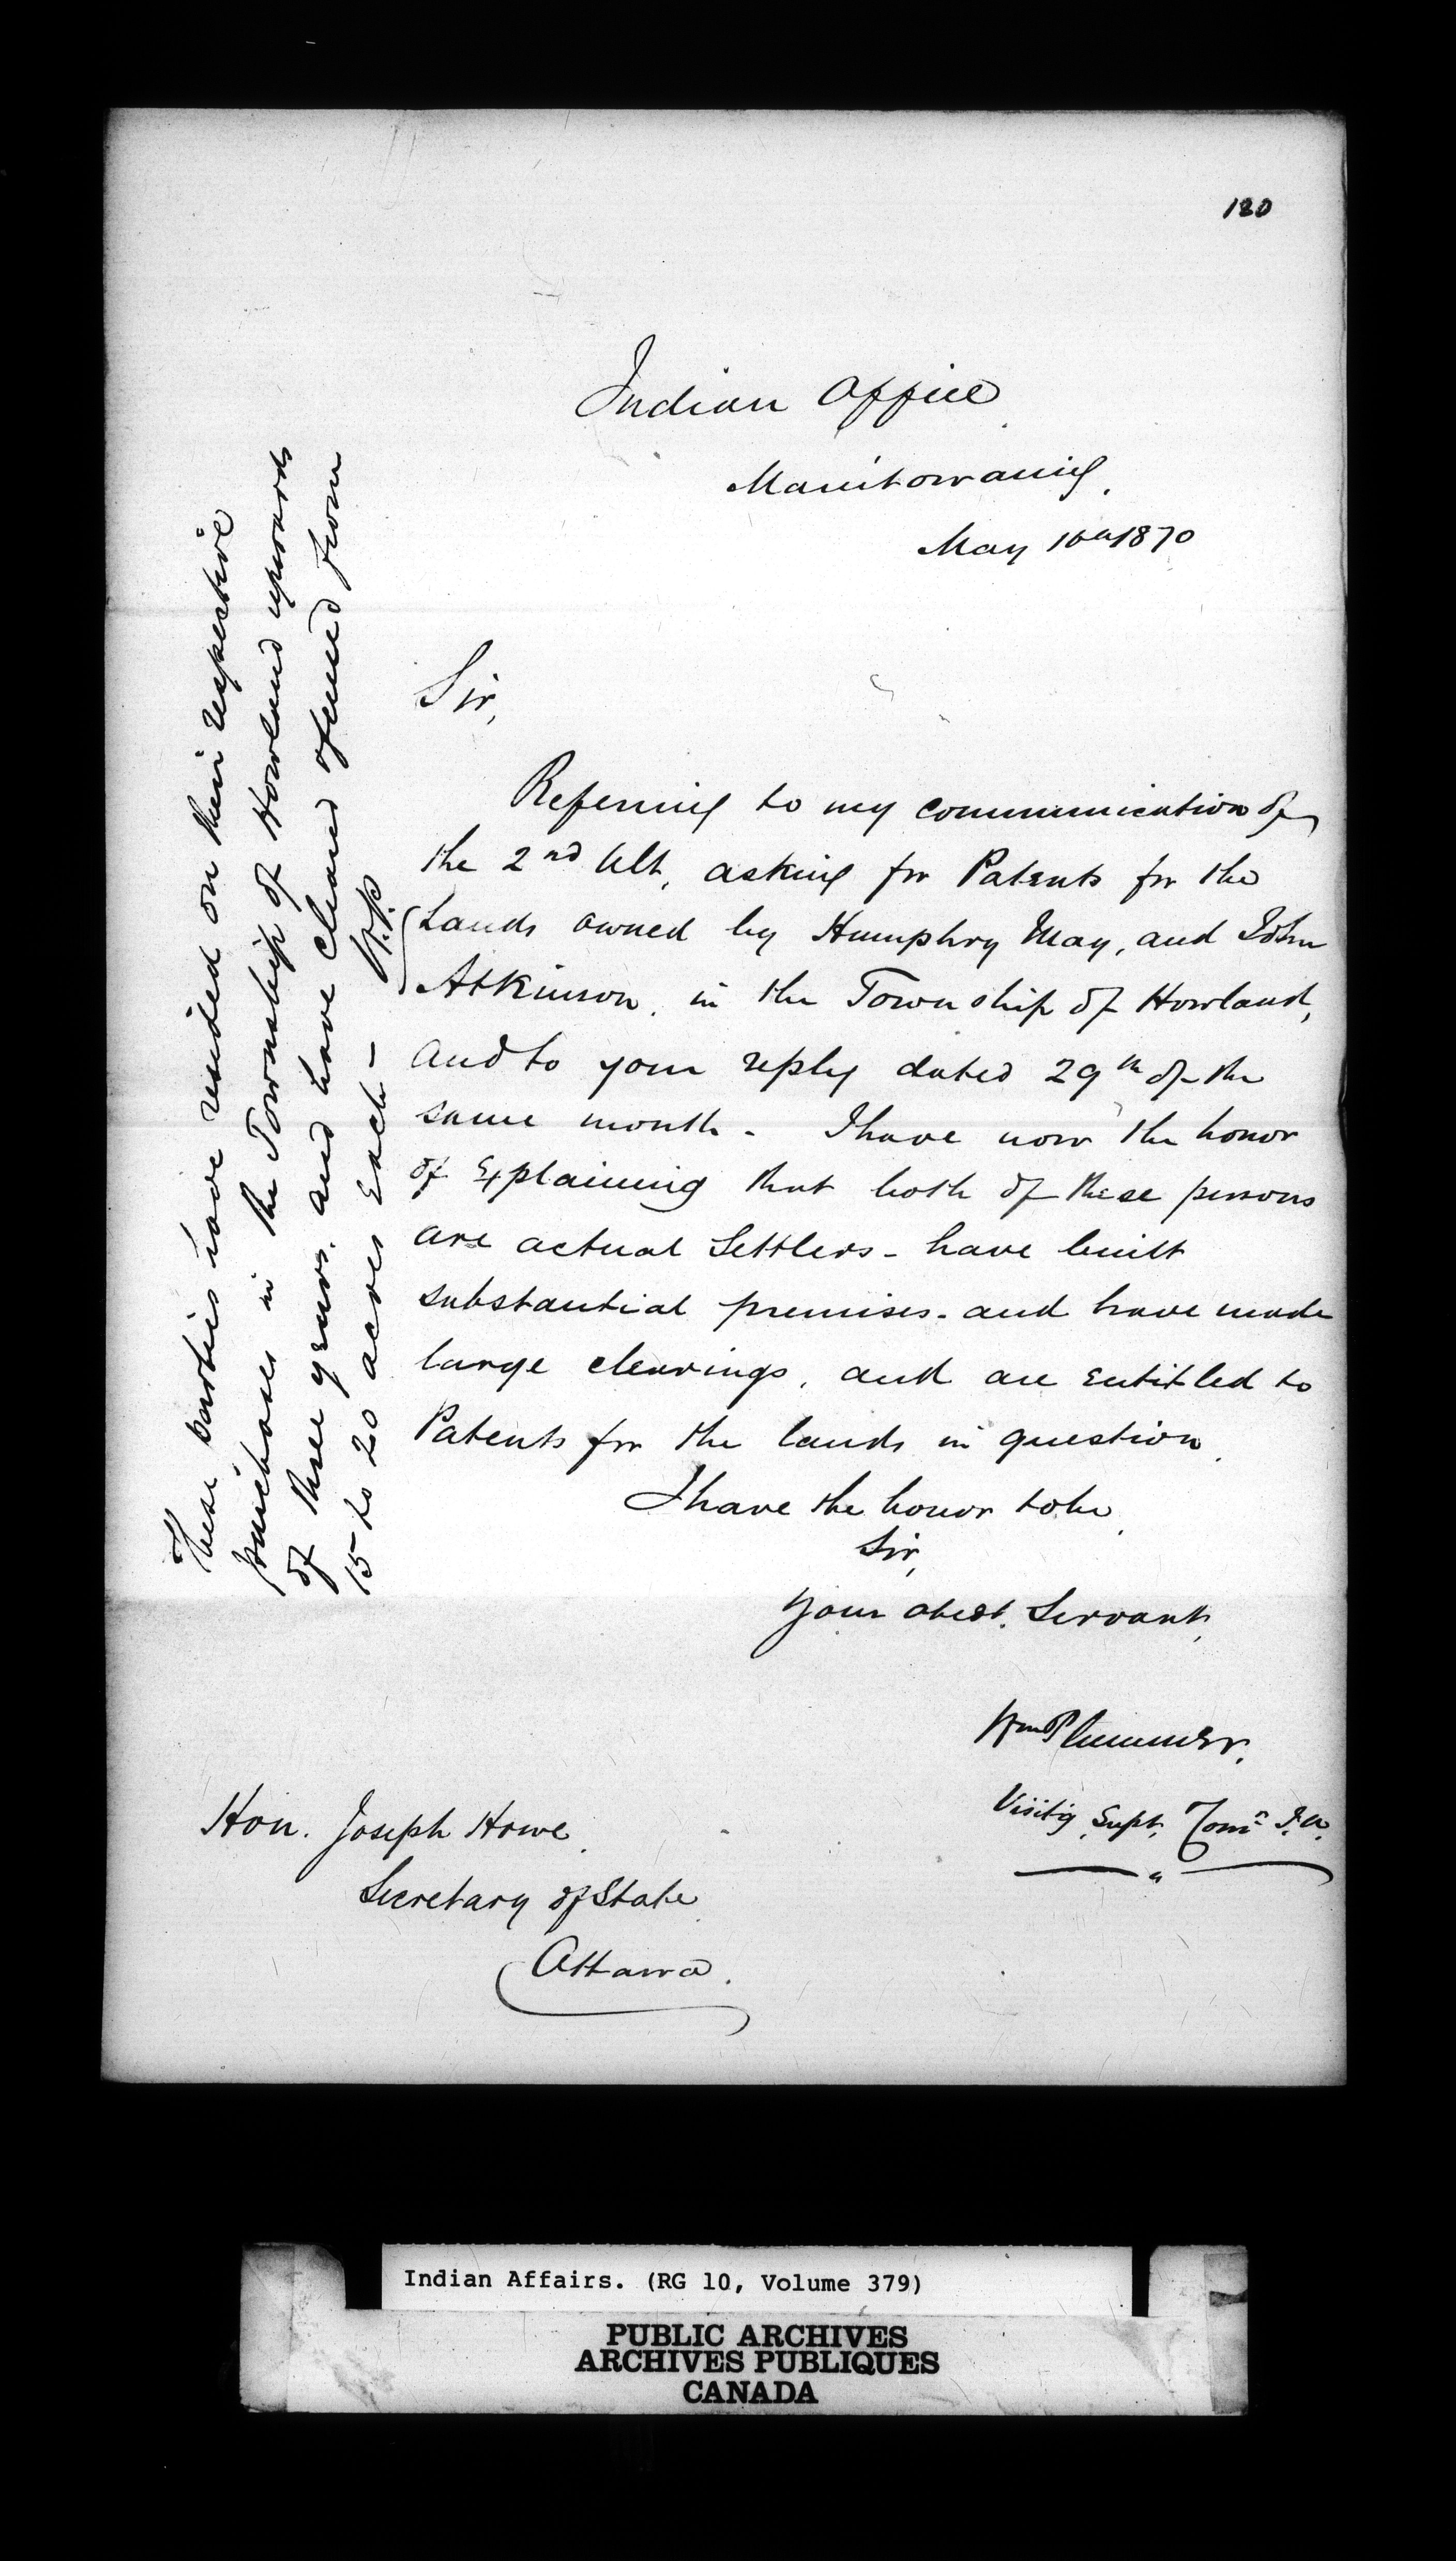 120
Indian Office
Manitowaning,
May 10th 1870
Sir,
Referring to my communication of
the 2nd Ult, asking for Patents for the
Lands owned by Humphry May, and John
Atkinson, in the Township of Howland,
and to your reply dated 29th of the
same month - I have now the honor
of Explaining that both of these persons
are actual Settlers - have built
substantial premises - and have made
large clearings, and are Entitled to
Patents for the lands in question.
I have the honor to be,
Sir,
Your obedt. Servant,
Wm Plummer.
Visitg Supt. Comr I.A.
Hon. Joseph Howe,
Secretary of State
Ottawa.
These parties have resided on their respective
purchases in the Township of Howland upwards
of three years, and have cleared &
15 to 20 acres Each - W.P.
Indian Affairs. (RG 10, Volume 379)
PUBLIC ARCHIVES
ARCHIVES PUBLIQUES
CANADA